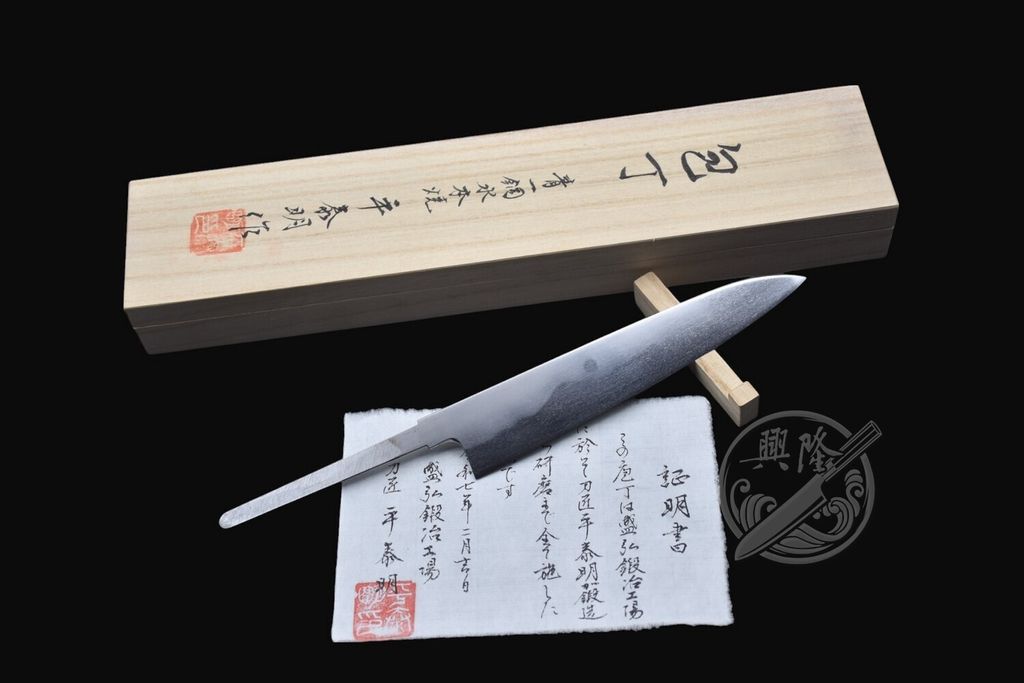 包丁
青一鋼水本焼
平泰明作
証明書
この庖丁は盛弘鍛冶工場
に於て刀匠平泰明が鍛造
研磨まで全て施した
です
七年二月吉日
盛弘鍛冶工場
刀匠 平泰明
興隆